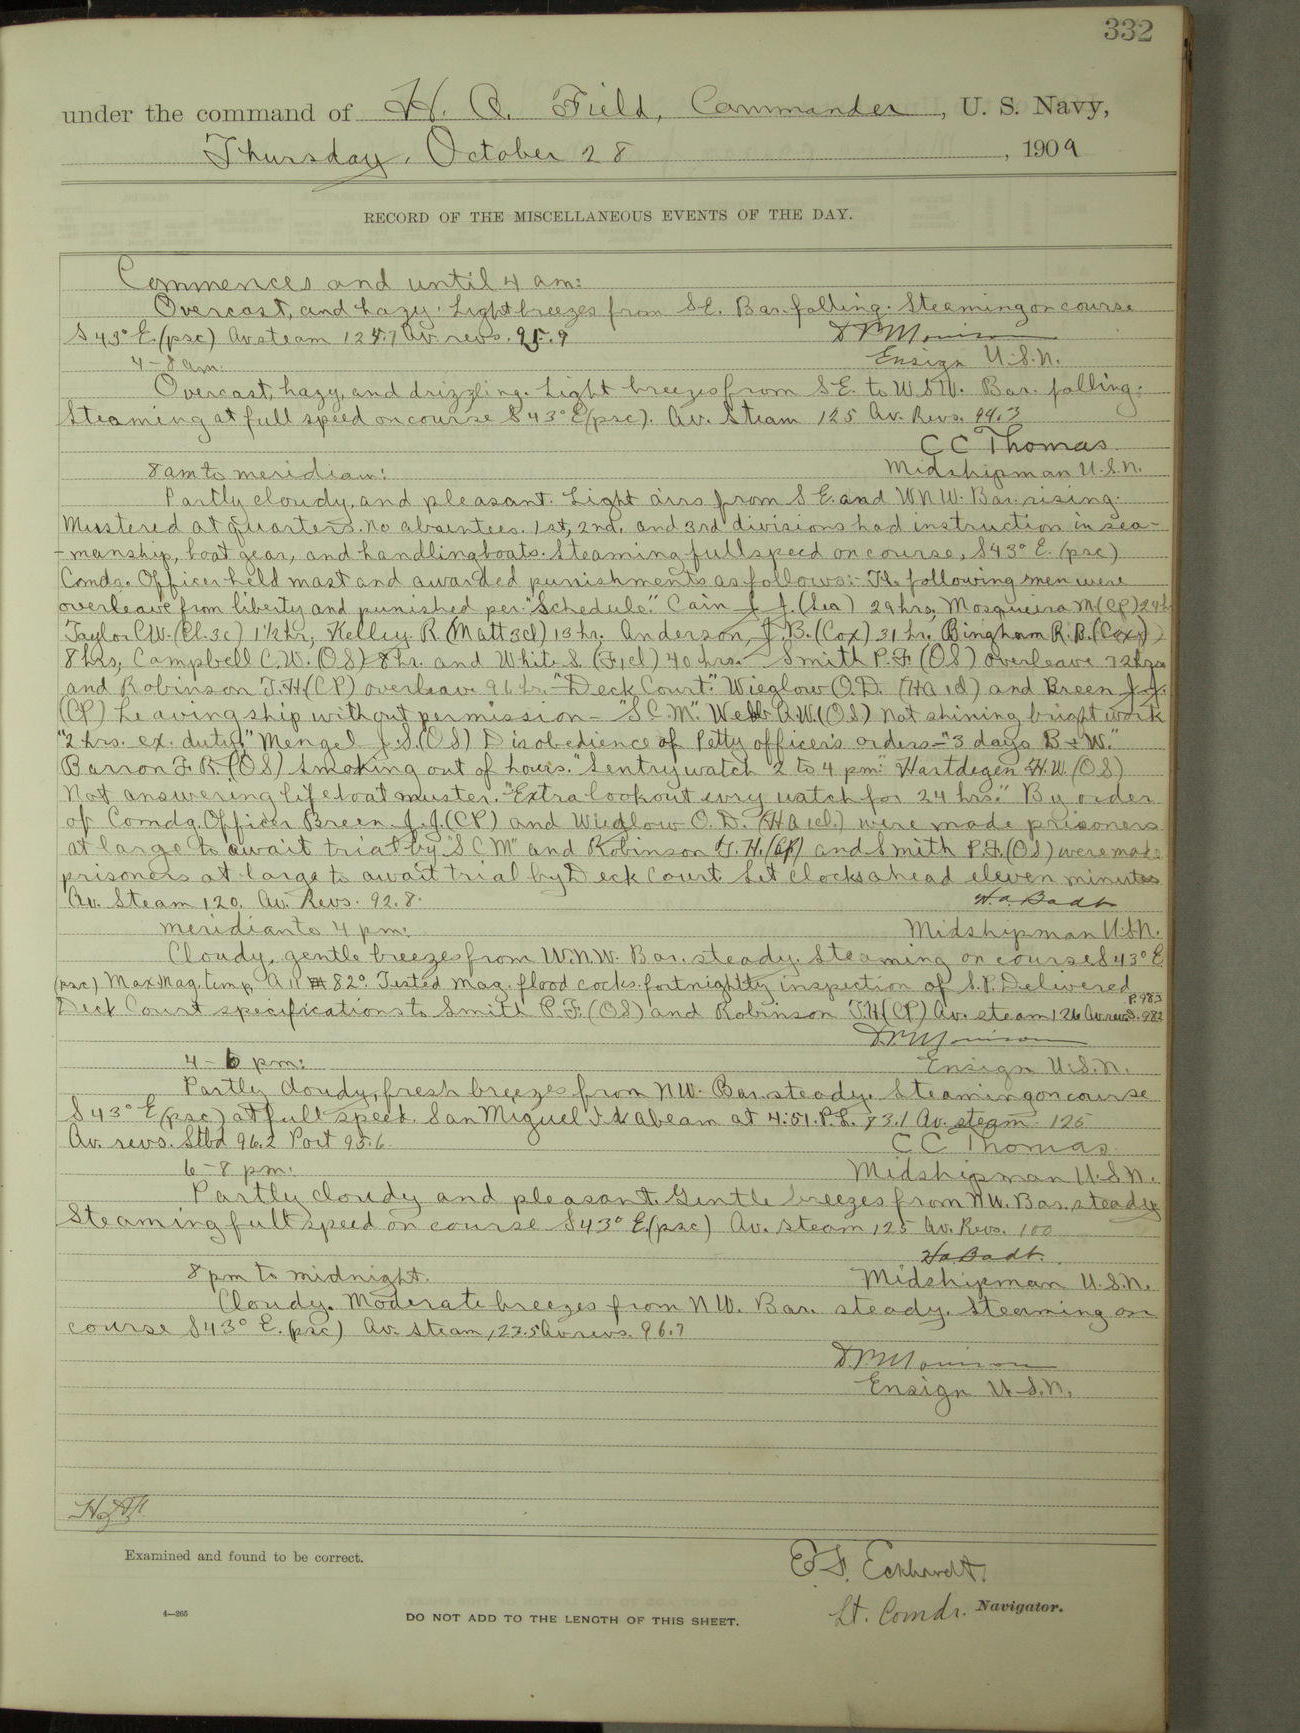 332
under the command of H. A. Field, Commander, U. S. Navy,
Thursday, October 28, 1909
RECORD OF THE MISCELLANEOUS EVENTS OF THE DAY.
Commences and until 4 am:
Overcast, and hazy. Light breezes from SE. Bar. falling. Steaming on course
S 43° E. (psc) Av steam 124.7 Av. revs. 95.9
Ensign U.S.N.
4-8 am.
Overcast, hazy, and drizzling. Light breezes from SE. to WSW. Bar. falling.
Steaming at full speed on course S 43° E (psc). Av. Steam 125 Av. Revs. 94.3
C C Thomas
8 am to meridian:
Midshipman U.S.N.
Partly cloudy, and pleasant. Light airs from S E. and WNW. Bar. rising.
Mustered at Quarters. no absentees. 1st, 2nd, and 3rd divisions had instruction in sea-
-manship, boat gear, and handling boats. Steaming full speed on course, S 43° E. (psc)
Comdg. Officer held mast and awarded punishments as follows:- The following men were
overleave from liberty and punished per "Schedule." Cain J. J. (Sea) 29 hrs, Mosqueira M. (CP) 29 h
Taylor C.W. (El. 3c) 1 1/2 hr, Kelley R. (Matt 3cl) 13 hr. Anderson, J. B. (Cox) 31 hr. Bingham R. B. (Cox.)
8 hrs, Campbell C.W. (OS) 8 hr. and White S. (F1cl) 40 hrs.- Smith P. F. (OS) overleave 72 hrs
and Robinson T. H. (CP) overleave 96 hr.- "Deck Court." Wieglow O.D. (HA 1cl) and Breen J. J.
(CP) Leaving ship without permission- "S C. M." Webb A.W. (OS) not shining bright work
"2 hrs. ex. duty." Mengel J. S. (OS) Disobedience of Petty officer's orders-"3 days B + W."
Barron F. R. (OS) Smoking out of hours. "Sentry watch 2 to 4 pm." Hartdegen H.W. (OS)
Not answering lifeboat muster. "Extra lookout evry watch for 24 hrs." By order
of Comdg. Officer Breen J. J. (CP) and Wieglow O. D. (HA 1cl.) were made prisoners
at large to await trial by "S C M" and Robinson T. H. (CP) and Smith P. F. (OS) were made
prisoners at large to await trial by Deck Court. Set clocks ahead eleven minutes
Av. Steam 120. Av. Revs. 92.8.
H. A. Badt
meridian to 4 pm:
Midshipman U.S.N.
Cloudy, gentle breezes from W.N.W. Bar. steady. Steaming on course S 43° E
(psc) Max Mag. temp, A 11 82°. Tested mag. flood cocks. fortnightly inspection of S.P. Delivered
Deck Court specifications to Smith P. F. (OS) and Robinson T. H. (CP) Av. steam 126 Av revs P. 98.3 S. 98.2
4-6 pm:
Ensign U.S.N.
Partly cloudy, fresh breezes from NW. Bar. steady. Steaming on course
S 43° E (psc) at full speed. San Miguel Isd abeam at 4:51. P.L. 73.1 Av. steam 125
Av. revs. Stbd 96.2 Port 95.6
C C Thomas
6-8 pm:
Midshipman U.S.N.
Partly cloudy and pleasant. Gentle breezes from NW. Bar. steady
Steaming full speed on course S 43° E. (psc) Av. steam 125 Av. Revs. 100
H A Badt.
8 pm to midnight.
Midshipman U.S.N.
Cloudy. Moderate breezes from NW. Bar. steady. Steaming on
course S 43° E. (psc) Av. steam, 122.5 Av revs. 96.7
Ensign U.S.N.
Examined and found to be correct.
E. F. Eckhardt,
Lt. Comdr. Navigator.
4—265
DO NOT ADD TO THE LENGTH OF THIS SHEET.